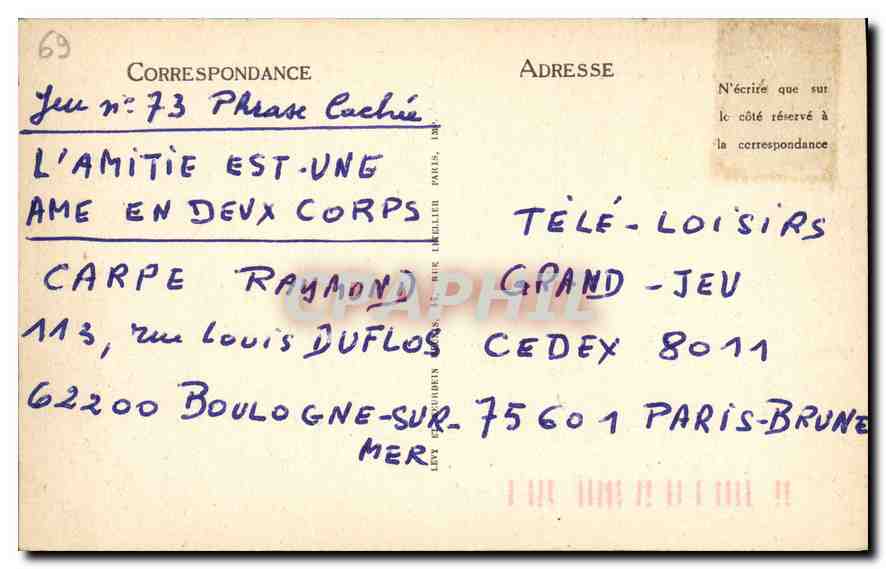 69
CORRESPONDANCE
Jeu n° 73 Phrase Cachée
L'AMITIE EST-UNE
AME EN DEUX CORPS
CARPE RAYMOND
113, rue Louis DUFLOS
62200 BOULOGNE-SUR-
MER
LEVY ET NEURDEIN RÉUNIS, 44, RUE LETELLIER PARIS, 130.
ADRESSE
N'écrire que sur
le côté réservé à
la correspondance
TÉLÉ-LOISIRS
GRAND-JEU
CEDEX 8011
75601 PARIS-BRUNE
CPAPHIL